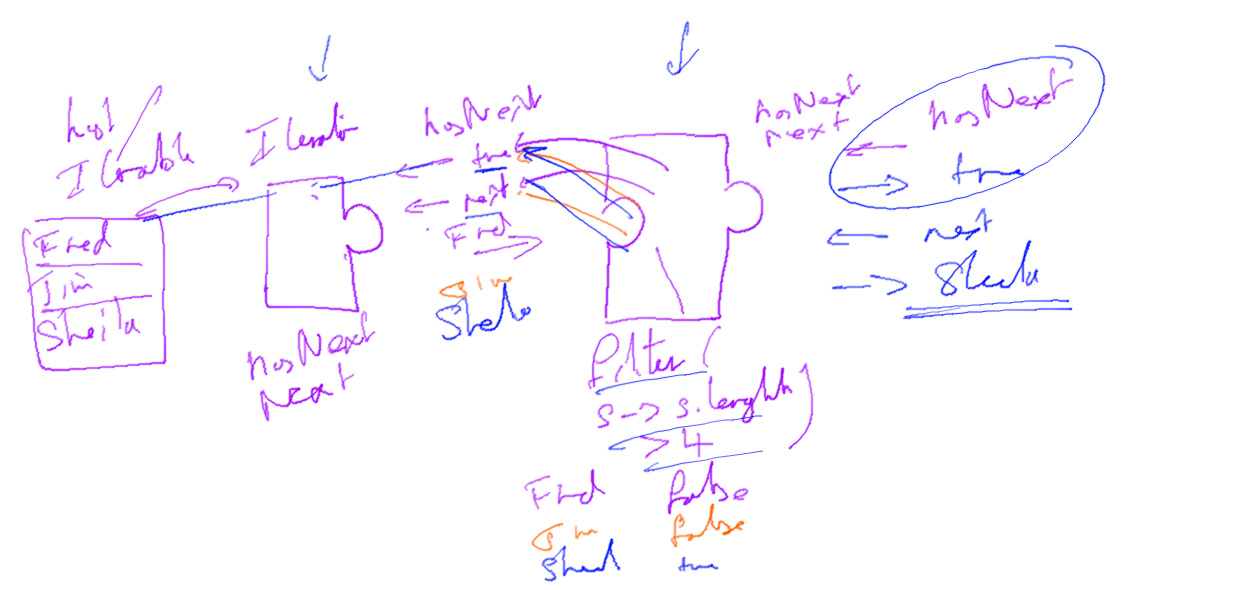 List
Iterable
Fred
Jim
Sheila
Iterator
hasNext
next
hasNext
true
next
Fred
Jim
Sheila
filter(
s -> s.length
> 4
)
Fred false
Jim false
Sheila true
hasNext
next
hasNext
true
next
Sheila